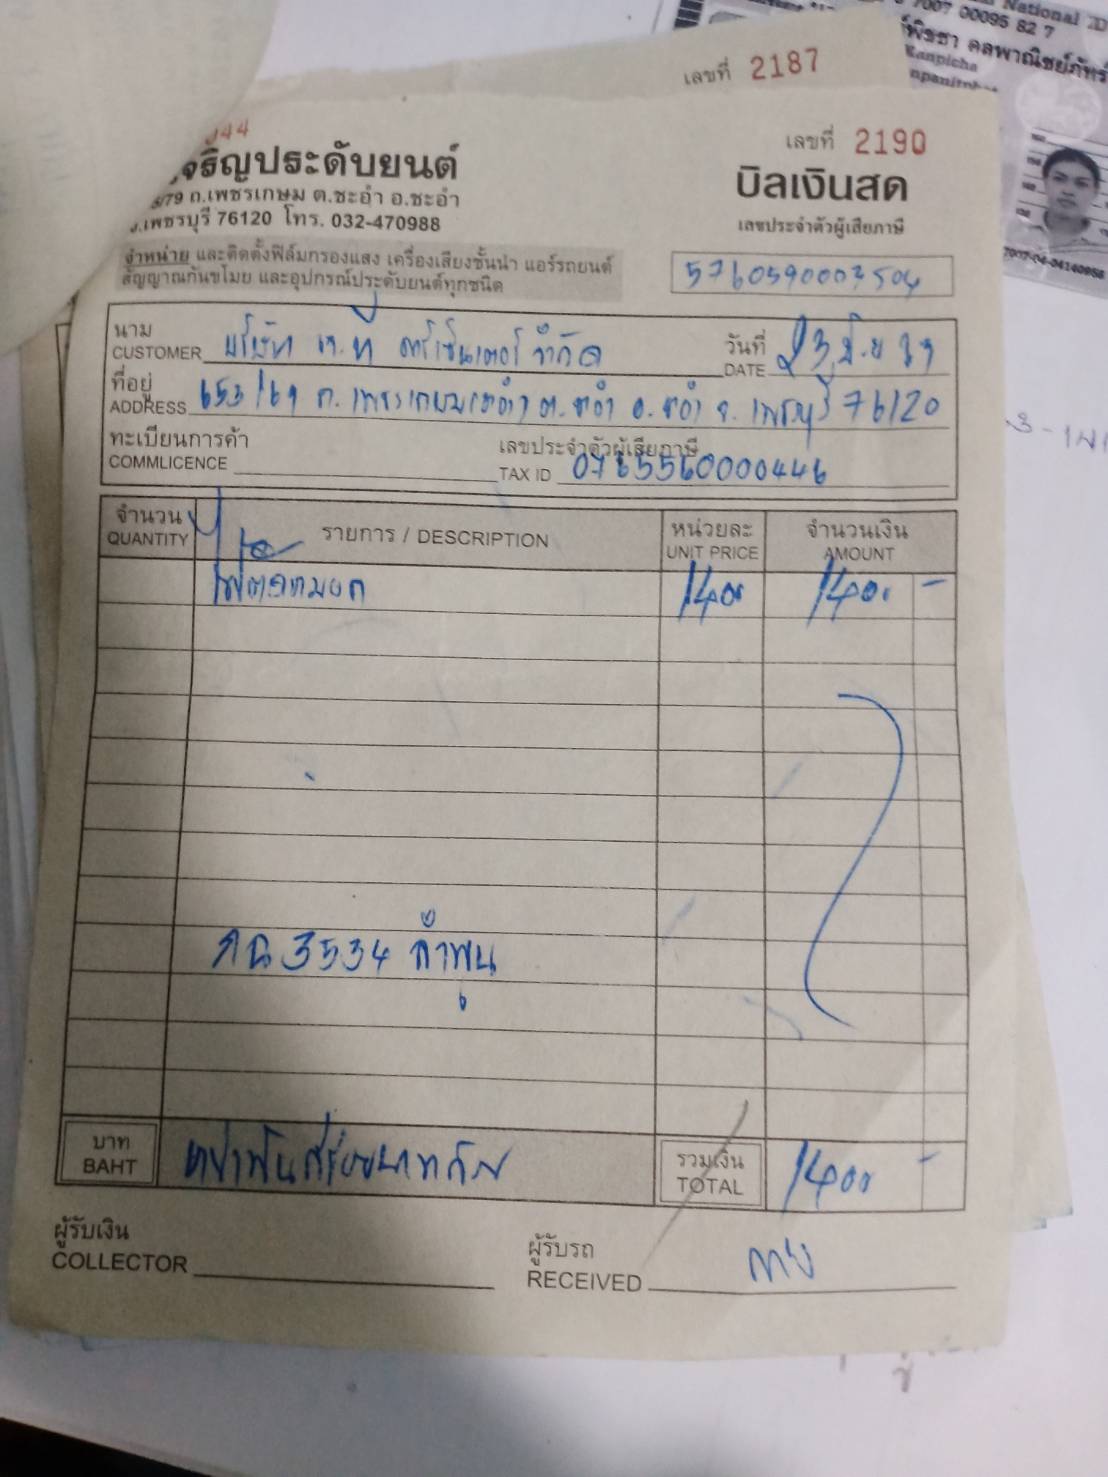 n National ID
7007 00095 82 7
พิชชา ดลพาณิชย์ภัทร์
Kanpicha
7007-04-04140958
เลขที่ 2187
44
เลขที่ 2190
จริญประดับยนต์
บิลเงินสด
/79 ถ.เพชรเกษม ต.ชะอำ อ.ชะอำ
จ.เพชรบุรี 76120 โทร. 032-470988
เลขประจำตัวผู้เสียภาษี
จำหน่าย และติดตั้งฟิล์มกรองแสง เครื่องเสียงชั้นนำ แอร์รถยนต์
สัญญาณกันขโมย และอุปกรณ์ประดับยนต์ทุกชนิด
5760590003504
นาม
CUSTOMER บริษัท เจ.ที คาร์เซ็นเตอร์ จำกัด
วันที่
DATE 23 มิ.ย
ที่อยู่
ADDRESS 653/69 ถ. เพชรเกษม ต.ชะอำ อ.ชะอำ จ. เพชรบุรี 76120
ทะเบียนการค้า
COMMLICENCE
เลขประจำตัวผู้เสียภาษี
TAX ID 0765560000446
จำนวน
QUANTITY
รายการ / DESCRIPTION
หน่วยละ
UNIT PRICE
จำนวนเงิน
AMOUNT
ไฟตัดหมอก 1400 1400 -
3534 ลำพูน
บาท
BAHT
หนึ่งพันสี่ร้อยบาทถ้วน
รวมเงิน
TOTAL
1400 -
ผู้รับเงิน
COLLECTOR
ผู้รับรถ
RECEIVED